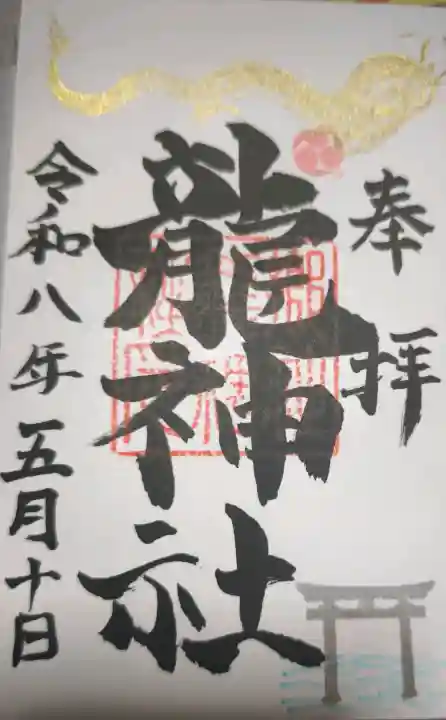 奉拝
龍神社
令和八年五月十日